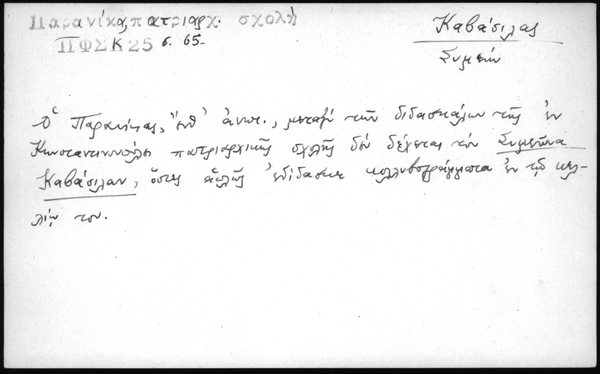 Παρανίκα, πατριαρχ. σχολή
ΠΦΣΚ25 σ. 65-
Καβάσιλας
Συμεών
Ὁ Παρανίκας, ἔνθ' ἀνωτ., μεταξὺ τῶν διδασκάλων τῆς ἐν
Κωνσταντινουπόλει πατριαρχικῆς σχολῆς δὲν δέχεται τὸν Συμεῶνα
Καβάσιλαν, ὅστις ἁπλῶς ἐδίδασκε κολλυβογράμματα ἐν τῷ κελ-
λίῳ του.